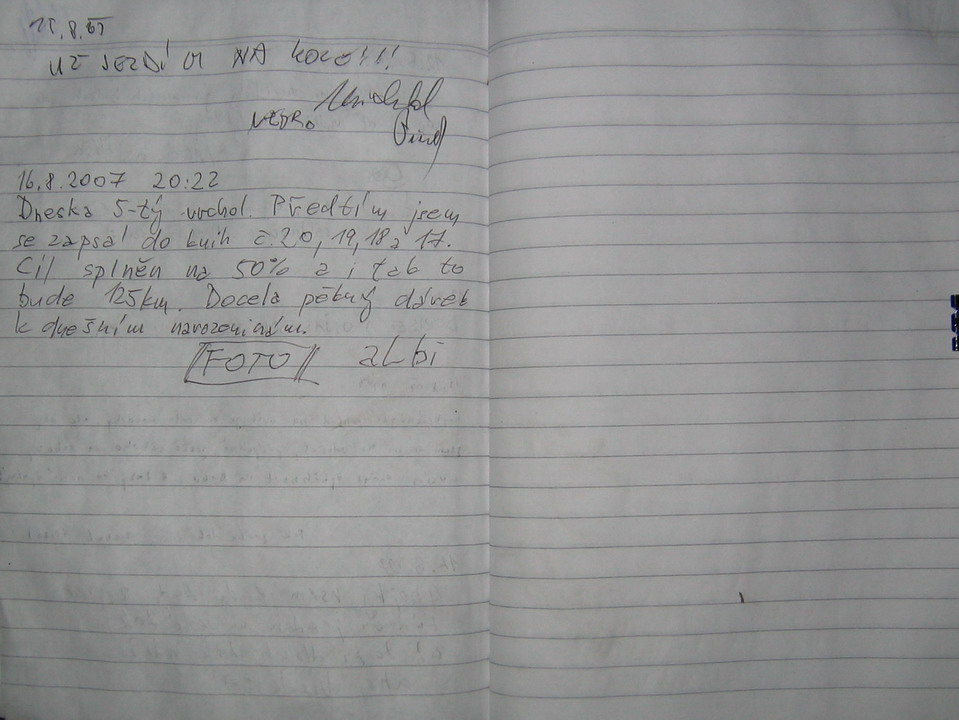 15.8.07
UŽ JEZDÍM NA KOLO!!!
VEDRO
16.8.2007 20:22
Dneska 5-tý vrchol. Předtím jsem
se zapsal do knih č.20, 19, 18 a 17.
Cíl splněn na 50% a i tak to
bude 125km. Docela pěkný dárek
k dnešním narozeninám.
FOTO albi